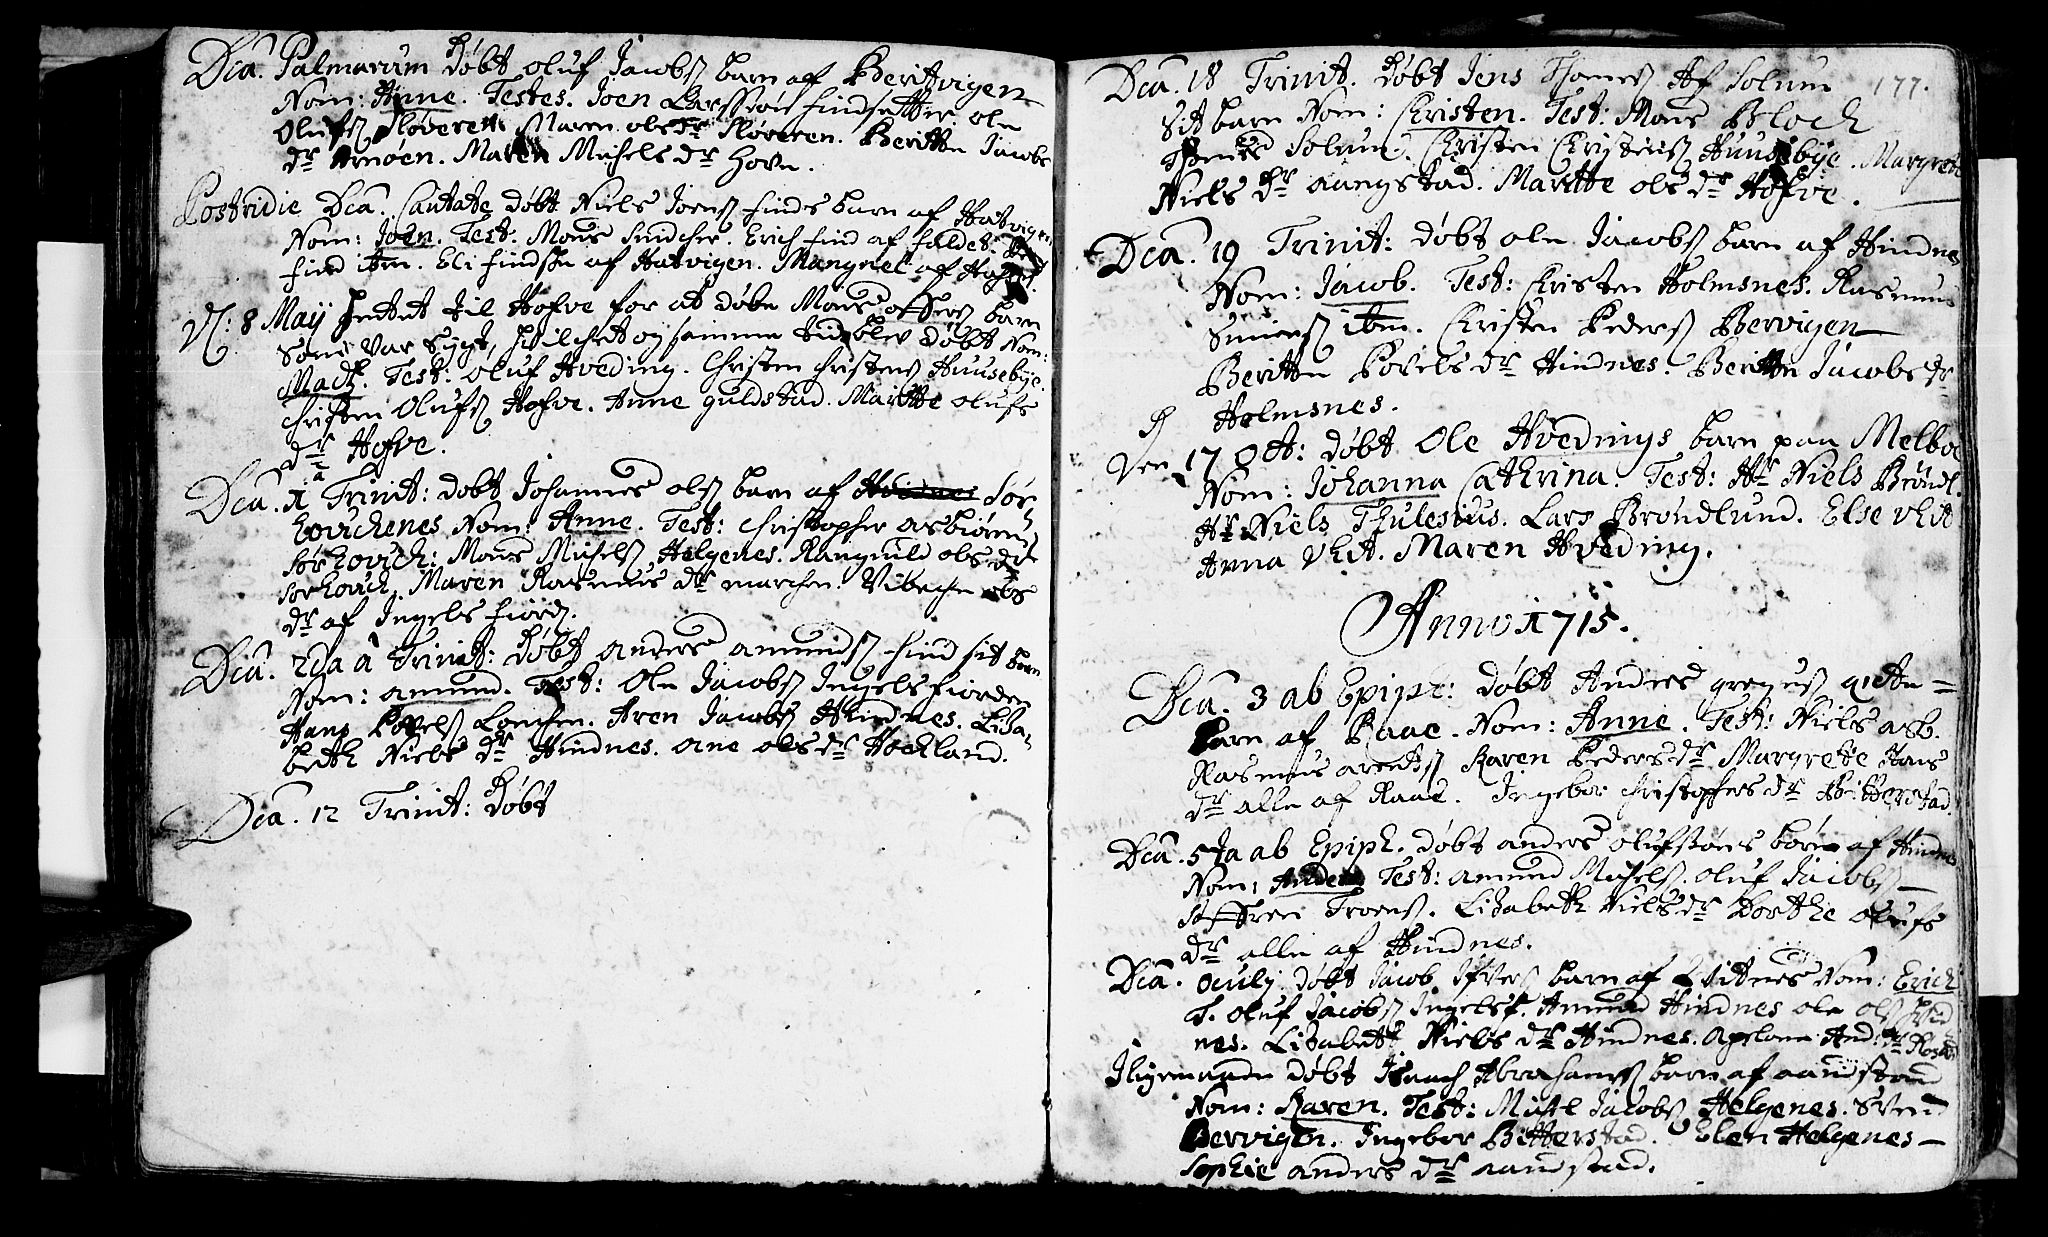 Dca. Palmarum Døbt Oluf Jacobs barn af Beritvigen
Nom: Anne. Testes. Joen Larssøn findsetter ole
Olufs Fløveren Maren ols dr Fløveren. Beritte Jacobs
dr Arnøen. Maren Michels dr Horn.
Postridie Dca. Cantate døbt Niels Joens finds barn af Hatvigen
Nom: Joen. Test. Mons. Erich find af faldet
find ibm. Eli findske af Hatvigen. Mangnel af
8 May hentet til Hofve for at døbe Mons barn
som var Sygt, og samme tid blev døbt Nom:
Madz. Test: Oluf Hveding. Christen Christens Huusebye.
Christen Olufs Hofve. Anne guldstad. Maritte Olufs
dr Hofve.
Dca. 1 a Trinit: døbt Johannes ols barn af Hindnes Sør
Nom: Anne. Test: Christopher Asbiørens
Mons Michels Helgenes. Rangnild ols dr
Maren Rasmus dr marchen. Vibeche ols
dr af Ingels fiord.
Dca. 2da a Trinit: Døbt anders amunds find sit barn
Nom: amund. Test: Ole Jacobs Ingelsfiorden
Hans Povels Aren Jacobs Hindnes. Lisa-
beth Niels dr Hindnes. ane ols dr Hockland.
Dca. 12 Trinit: Døbt
177.
Dca. 18 Trinit. Døbt Jens Thomes Af Solum
sit barn Nom: Christen. Test: Mons Bloch
Thomes Solum. Christen Christens Huusebye. Margrete
Niels dr aungstad. Maritte ols dr Hofve.
Dca. 19 Trinit: døbt ole Jacobs barn af Hindnes
Nom: Jacob. Test: Christen Holmsnes. Rasmus
Simens ibm. Christen Peders Bervigen
Beritte Povels dr Hindnes. Beritte Jacobs dr
Holmsnes.
Den 17 Oct: døbt Ole Hvedings barn paa Melboe
Nom: Johanna Cathrina. Test: Hr Niels Brøndl.
Hr Niels Thulesius. Lars Brøndlund. Else
Anna. Maren Hveding.
Anno 1715.
Dca. 3 ab Epiph: døbt Andres gregus
Barn af Raae. Nom: Anne. Test: Niels asb.
Rasmus arents Karen Peders dr Margrete Hans
dr alle af Raae. Ingebor Christophers dr Bitterstad.
Dca. 5ta ab Epiph. døbt anders olufsøns børn af Hindnes
Nom: Anders Test: amund Michels. oluf Jacobs
Steffren Troens. Lisabeth Niels dr Dorthe olufs
dr alle af Hindnes.
Dca. Oculj døbt Jacob Ifvers barn af Nom: Erich
T. oluf Jacobs Ingelsf. Amund Hindnes ole ols Hind
nes. Lisabeth Niels dr Hindnes. Apelone And: dr
døbt Isaach Abrahams barn af aandstad
Nom: Karen. Test: Michel Jacobs Helgenes. Svend
Bervigen. Ingebor Bitterstad. Elen Helgenes
Sophie anders dr aandstad.